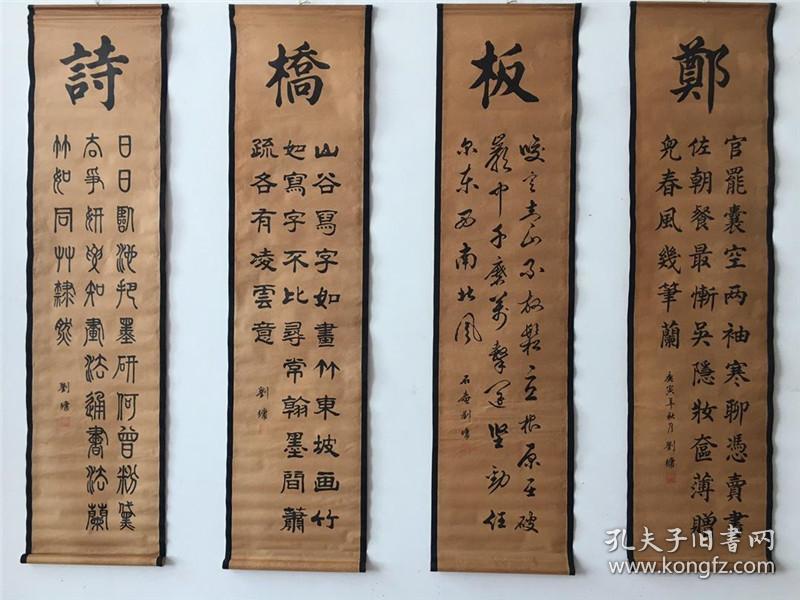 鄭
官罷囊空两袖寒聊憑賣畫
佐朝餐最慚吳隱妝奩薄贈
兒春風幾筆蘭
庚寅年秋月 劉墉
板
咬定青山不放鬆立根原在破
巖中千磨萬擊還坚勁任
尔东西南北風
石庵劉墉
橋
山谷寫字如畫竹東坡画竹
如寫字不比尋常翰墨間蕭
疏各有凌雲意
劉墉
詩
日日臨池把墨研何曾粉黛
去爭妍要知畫法通書法蘭
竹如同艸隸然
劉墉
孔夫子旧书网
www.kongfz.com